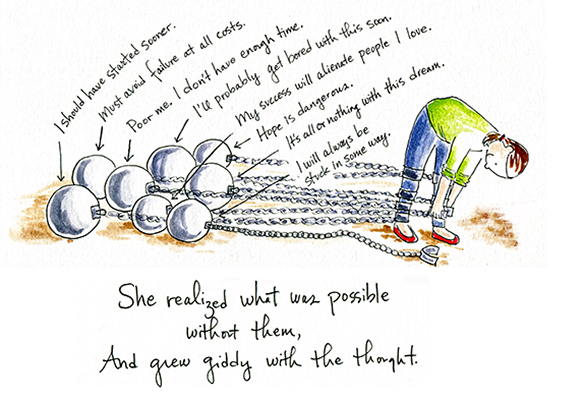 I should have started sooner.
Must avoid failure at all costs.
Poor me. I don't have enough time.
I'll probably get bored with this soon.
My success will alienate people I love.
Hope is dangerous.
It's all or nothing with this dream.
I will always be
stuck in some way.
She realized what was possible
without them,
And grew giddy with the thought.